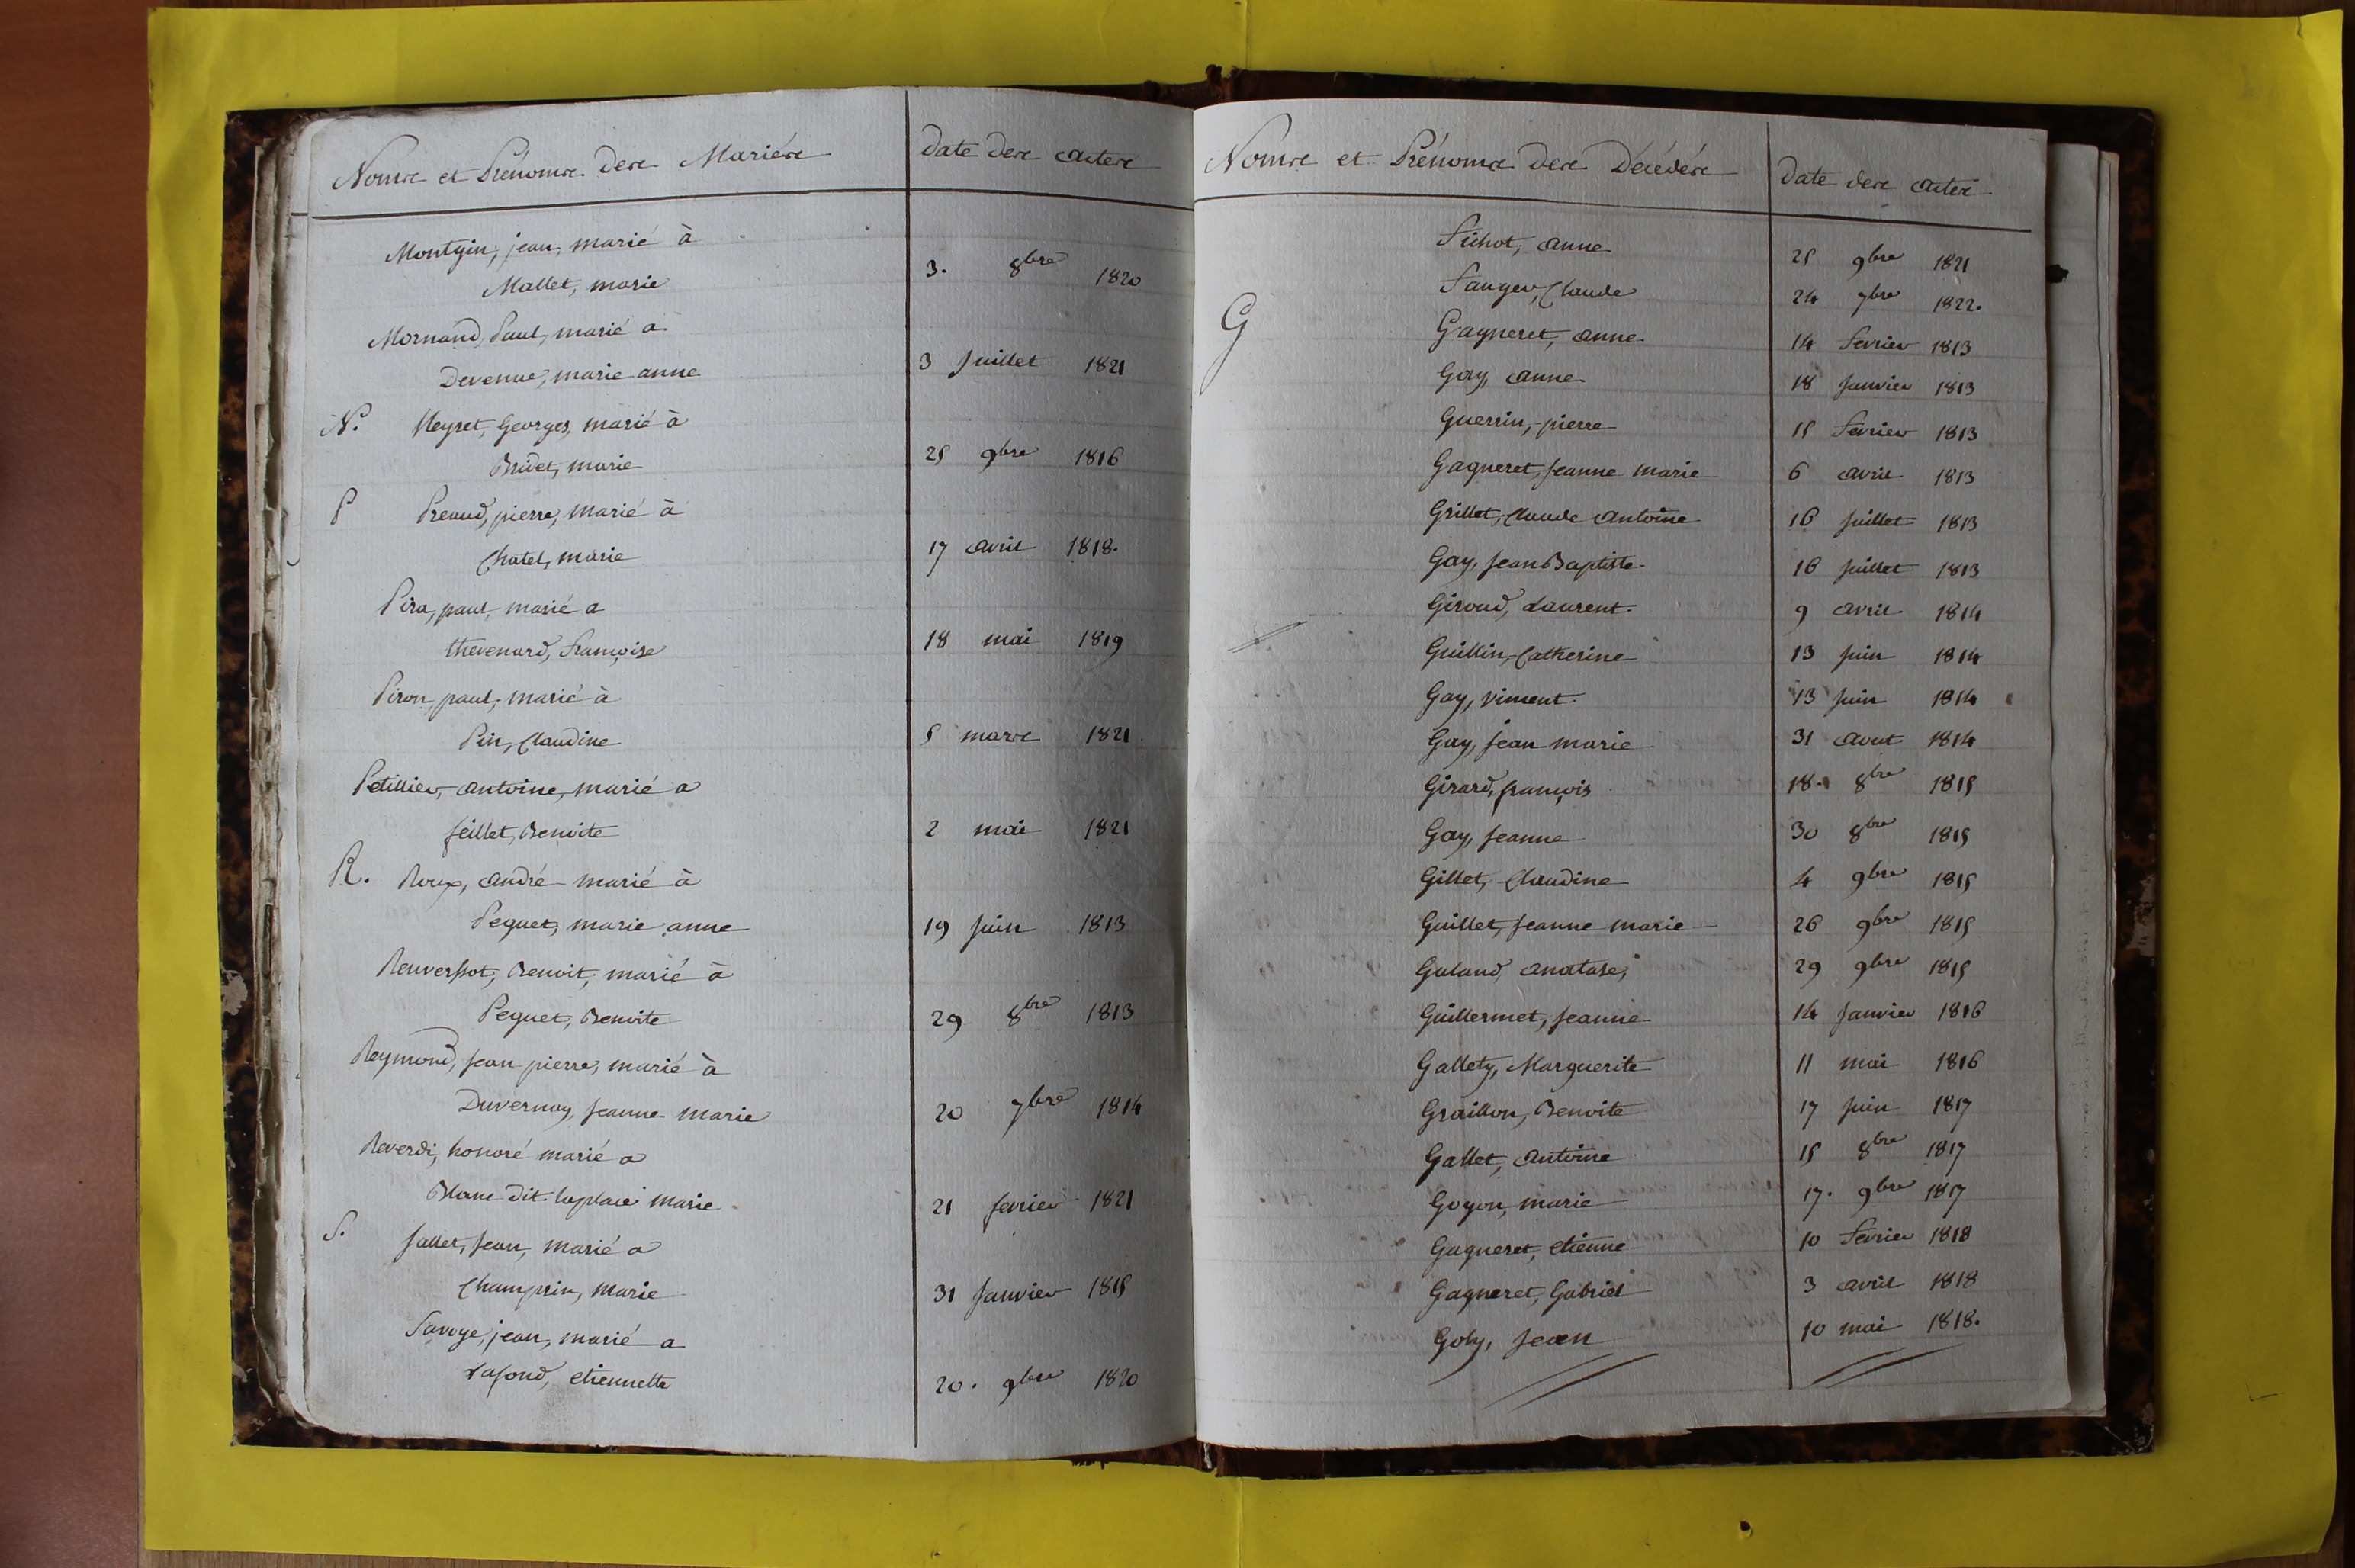 Noms et Prénoms des Mariés Date des actes
Montgin, jean, marié à
Mallet, marie 3. 8bre 1820
Mornand, Paul, marié a
Devenue, marie anne 3 Juillet 1821
N. Neyret, Georges, marié à
Bridet, marie 25 9bre 1816
P Preaud, pierre, marié à
Chatel, marie 17 avril 1818.
Pira, paul, marié a
thevenard, Françoise 18 mai 1819
Piron, paul, marié à
Pin, Claudine 5 mars 1821
Petillier, antoine, marié a
feillet, Benoite 2 mai 1821
R. Roux, andré marié à
Peguet, marie anne 19 Juin 1813
Renverssot, Benoit, marié à
Peguet, Benoite 29 8bre 1813
Reymond, Jean pierre, marié à
Duvernay, Jeanne marie 20 7bre 1814
Reverdi, honoré marié a
Blanc dit laplace marie 21 fevrier 1821
S. Sallet, Jean, marié a
Champrin, Marie 31 Janvier 1815
Savoye, jean, marié a
Lafond, etiennette 20. 9bre 1820
Noms et Prénoms des Décédés Date des actes
Fichot, anne 25 9bre 1821
Fauger, Claude 24 7bre 1822.
G Gagneret, anne 14 Fevrier 1813
Gay, anne 18 Janvier 1813
Guerrin, pierre 15 Fevrier 1813
Gagneret, Jeanne marie 6 avril 1813
Grillet, Claude antoine 16 Juillet 1813
Gay, Jean Baptiste 16 Juillet 1813
Giroud, Laurent 9 avril 1814
Guillin, Catherine 13 Juin 1814
Gay, vincent 13 Juin 1814
Gay, Jean marie 31 aout 1814
Girard, françois 18. 8bre 1815
Gay, Jeanne 30 8bre 1815
Gillet, Claudine 4 9bre 1815
Guillet, Jeanne marie 26 9bre 1815
Galand, anatase, 29 9bre 1815
Guillermet, Jeanne 14 Janvier 1816
Gallety, Marguerite 11 mai 1816
Graillon, Benoite 17 Juin 1817
Gallet, antoine 15 8bre 1817
Goyon, marie 17. 9bre 1817
Gagneret, etienne 10 Fevrier 1818
Gagneret, Gabriel 3 avril 1818
Goly, Jean 10 mai 1818.